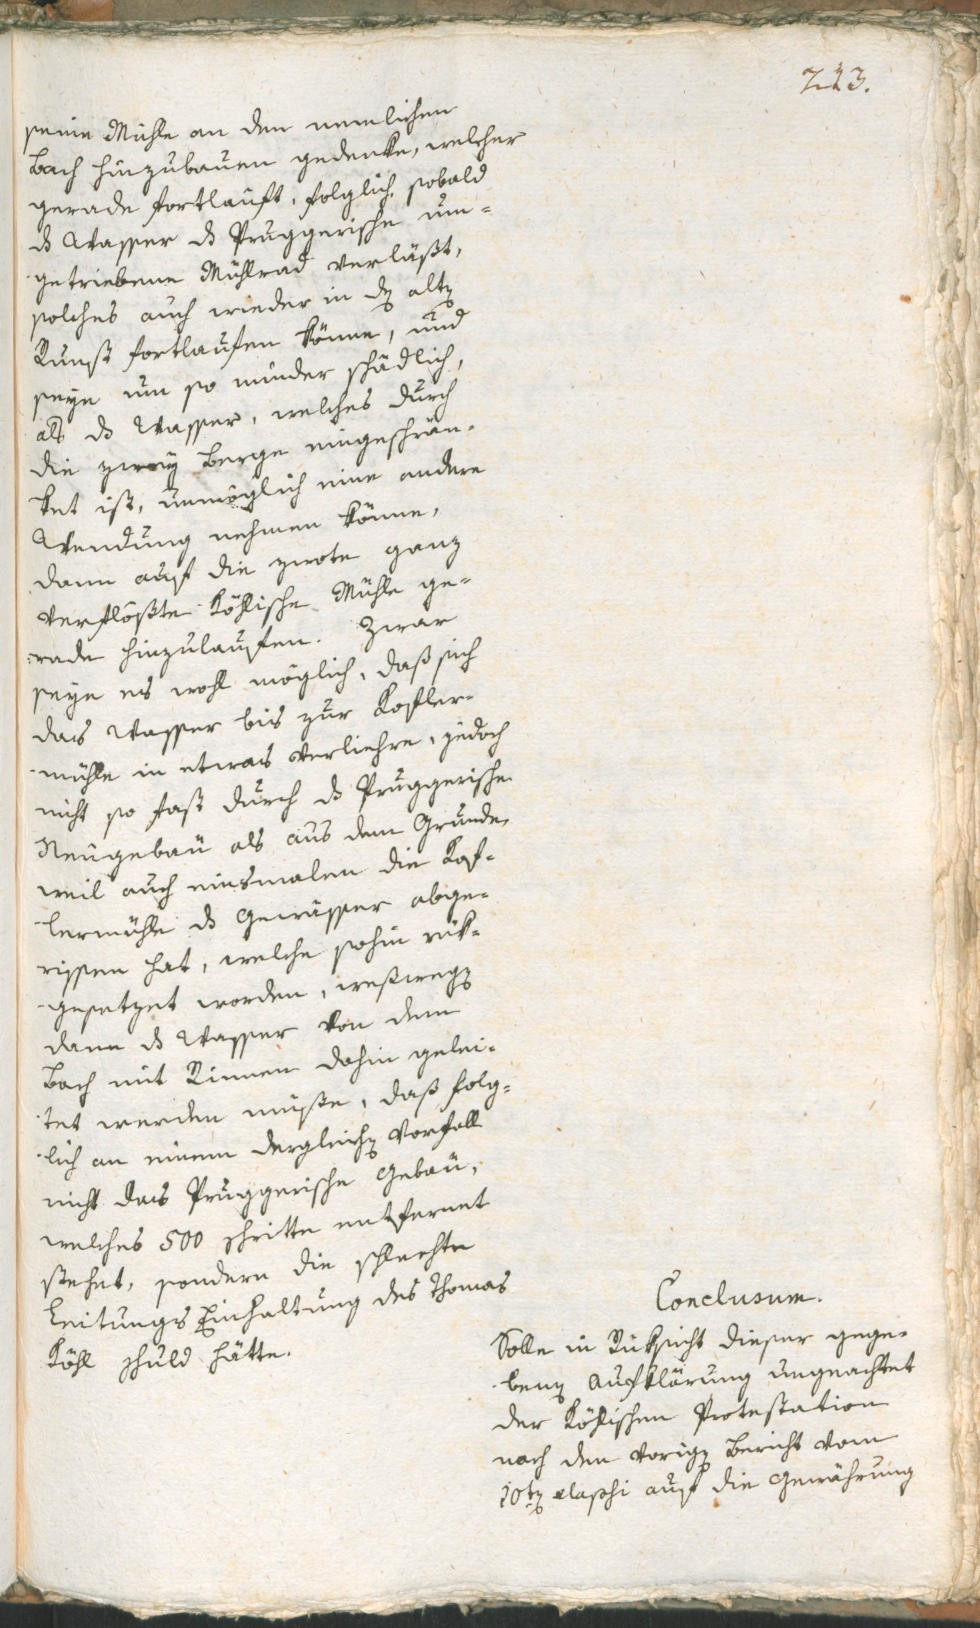 723.
seine Mühle an den nemlichen
Bach hinzubauen gedenke, welcher
gerade fortlauft, folglich, sobald
ds Wasser ds Pruggerische um-
getriebene Mühlrad verläßt,
solches auch wieder in dz altz
Runst fortlaufen könne, und
seye um so minder schädlich,
als ds Wasser, welches durch
die zwey Berge eingeschrän-
ket ist, unmöglich eine andere
Wendung nehmen könne,
dann auf die zwote ganz
verflößte Köhlische Mühle ge-
rade hinzulaufen. Zwar
seye es wohl möglich, daß sich
das Wasser bis zur Kofler-
mühle in etwas verliehre, jedoch
nicht so fast durch ds Pruggerische
Neugebäu als aus dem Grunde,
weil auch einsmalen die Kof-
lermühle ds Gewässer abge-
rissen hat, welche sohin rük-
gesetzet worden, weßwegz
dann ds Wasser von dem
Bach mit Rinnen dahin gelei-
tet werden müßte, daß folg-
lich an einem dergleichz Vorfall
nicht das Pruggerische Gebäu,
welches 500 schritte entfernet
stehet, sondern die schlechte
Leitungs Einhaltung des Thomas
Köhl schuld hätte.
Conclusum.
Solle in Rüksicht dieser gege-
benz Aufklärung ungeachtet
der Köhlischen Protestation
nach den vorigz Bericht vom
10tz elapsi auf die Gewährung